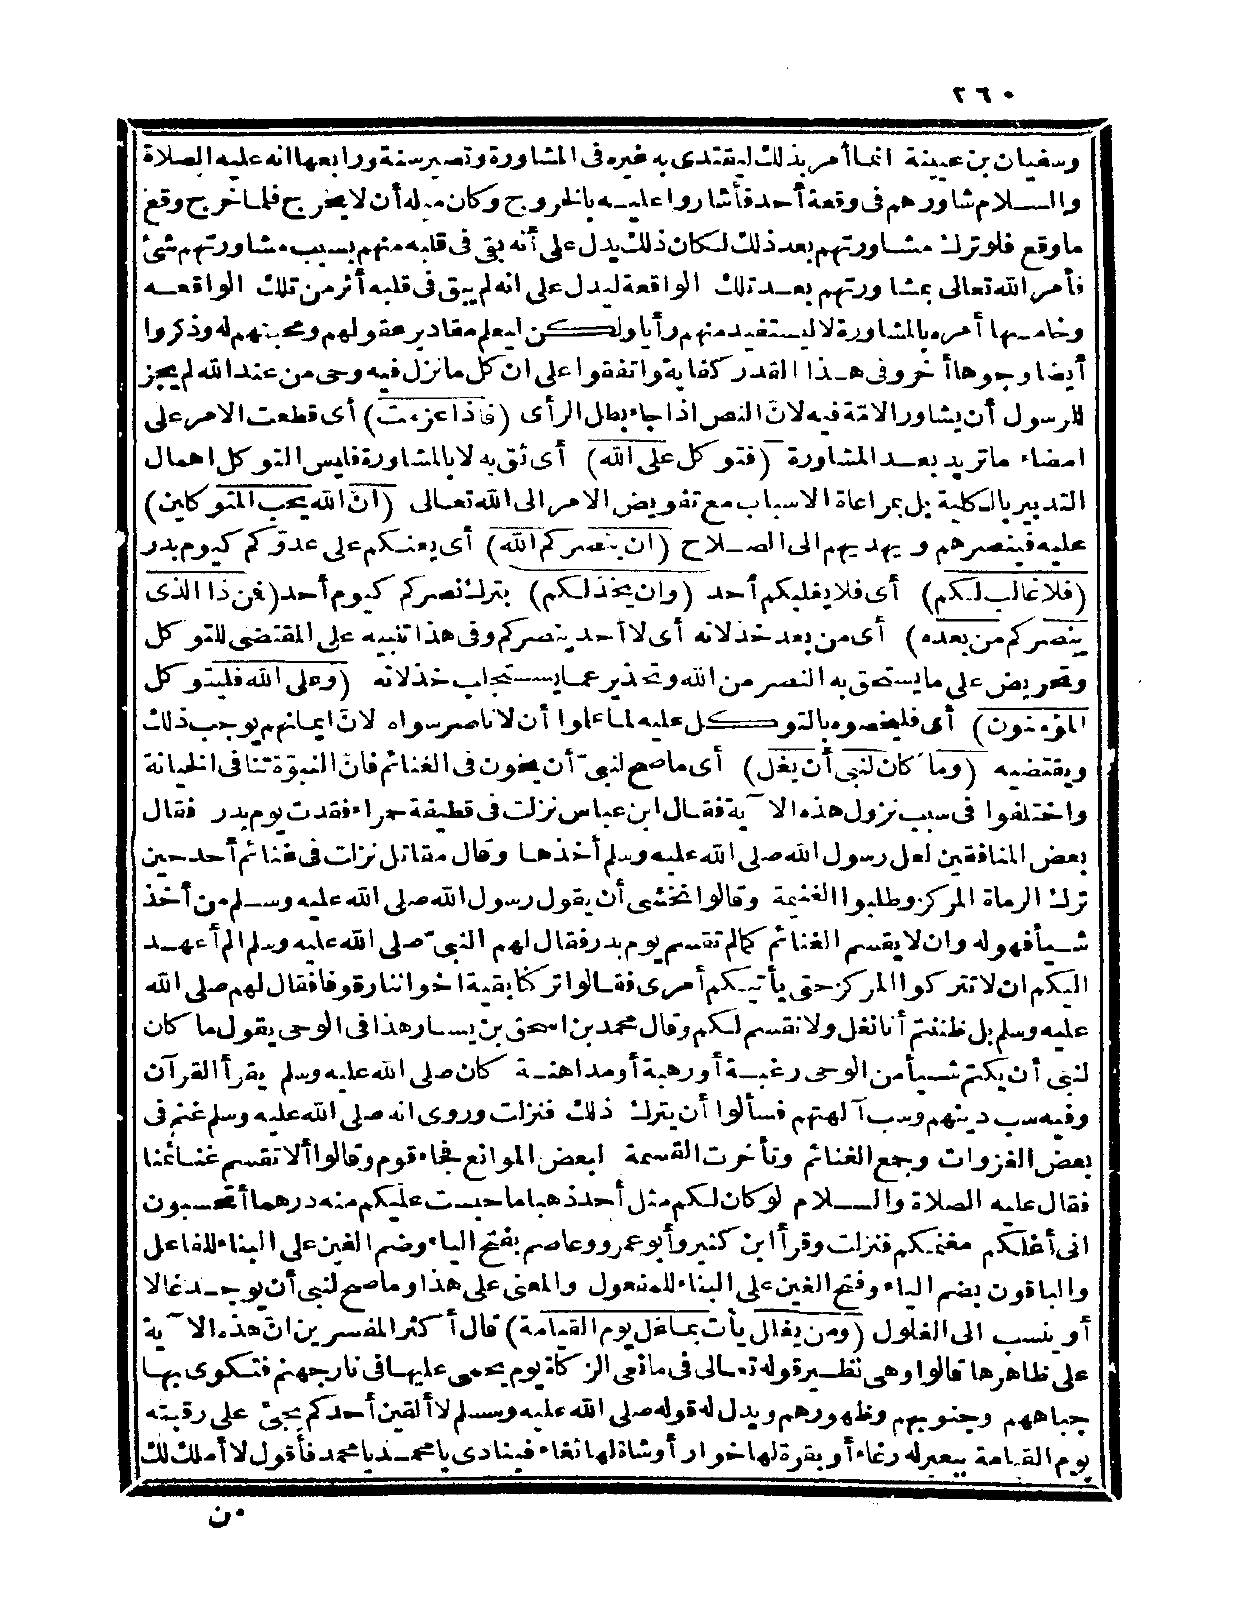 ٢٦٠
وسفيان بن عيينة انما أمر بذلك ليقتدى به غيره فى المشاورة وتصير سنة ورابعها انه عليه الصلاة
والسلام شاورهم فى وقعة أحد فأشاروا عليه بالخروج وكان ميله أن لا يخرج فلما خرج وقع
ما وقع فلو ترك مشاورتهم بعد ذلك لكان ذلك يدل على أنه بقى فى قلبه منهم بسبب مشاورتهم شئ
فأمر الله تعالى بمشاورتهم بعد تلك الواقعة ليدل على انه لم يبق فى قلبه أثر من تلك الواقعه
وخامسها أمره بالمشاورة لا ليستفيد منهم رأيا ولكن ليعلم مقادير عقولهم ومحبتهم له وذكروا
أيضا وجوها أخر وفى هذا القدر كفاية واتفقوا على ان كل ما نزل فيه وحى من عند الله لم يجز
للرسول أن يشاور الامّة فيه لانّ النص اذا جاء بطل الرأى (فاذا عزمت) أى قطعت الامر على
امضاء ما تريد بعد المشاورة (فتوكل على الله) أى ثق به لا بالمشاورة فليس التوكل اهمال
التدبير بالكلية بل بمراعاة الاسباب مع تفويض الامر الى الله تعالى (انّ الله يحب المتوكلين)
عليه فينصرهم ويهديهم الى الصلاح (ان ينصركم الله) أى يعنكم على عدوّكم كيوم بدر
(فلا غالب لكم) أى فلا يغلبكم أحد (وان يخذلكم) بترك نصركم كيوم أحد (فمن ذا الذى
ينصركم من بعده) أى من بعد خذلانه أى لا أحد ينصركم وفى هذا تنبيه على المقتضى للتوكل
وتحريض على ما يستحق به النصر من الله وتحذير عما يستجلب خذلانه (وعلى الله فليتوكل
المؤمنون) أى فليخصوه بالتوكل عليه لما علموا أن لا ناصر سواه لانّ ايمانهم يوجب ذلك
ويقتضيه (وما كان لنبى أن يغل) أى ما صح لنبىّ أن يخون فى الغنائم فانّ النبوّة تنافى الخيانة
واختلفوا فى سبب نزول هذه الآية فقال ابن عباس نزلت فى قطيفة حمراء فقدت يوم بدر فقال
بعض المنافقين لعل رسول الله صلى الله عليه وسلم أخذها وقال مقاتل نزلت فى غنائم أحد حين
ترك الرماة المركز وطلبوا الغنيمة وقالوا نخشى أن يقول رسول الله صلى الله عليه وسلم من أخذ
شيأ فهو له وان لا يقسم الغنائم كما لم تقسم يوم بدر فقال لهم النبىّ صلى الله عليه وسلم ألم أعهد
اليكم ان لا تتركوا المركز حتى يأتيكم أمرى فقالوا تركنا بقية اخواننا وقوفا فقال لهم صلى الله
عليه وسلم بل ظننتم أنا نغل ولا نقسم لكم وقال محمد بن اسحق بن يسار هذا فى الوحى يقول ما كان
لنبى أن يكتم شيأ من الوحى رغبة أو رهبة أو مداهنة كان صلى الله عليه وسلم يقرأ القرآن
وفيه سب دينهم وسب آلهتهم فسألوا أن يترك ذلك فنزلت وروى انه صلى الله عليه وسلم غنم فى
بعض الغزوات وجمع الغنائم وتأخرت القسمة لبعض الموانع فجاء قوم وقالوا ألا تقسم غنائمنا
فقال عليه الصلاة والسلام لو كان لكم مثل أحد ذهبا ما حبست عليكم منه درهما أتحسبون
انى أغلكم مغنمكم فنزلت وقرأ ابن كثير وأبو عمرو وعاصم بفتح الياء وضم الغين على البناء للفاعل
والباقون بضم الياء وفتح الغين على البناء للمفعول والمعنى على هذا وما صح لنبى أن يوجد غالا
أو ينسب الى الغلول (ومن يغلل يأت بما غل يوم القيامة) قال أكثر المفسرين انّ هذه الآية
على ظاهرها قالوا وهى نظير قوله تعالى فى مانعى الزكاة يوم يحمى عليها فى نار جهنم فتكوى بها
جباههم وجنوبهم وظهورهم ويدل له قوله صلى الله عليه وسلم لا ألقين أحدكم يجئ على رقبته
يوم القيامة ببعير له رغاء أو بقرة لها خوار أو شاة لها ثغاء فينادى يا محمد يا محمد فأقول لا أملك لك
من